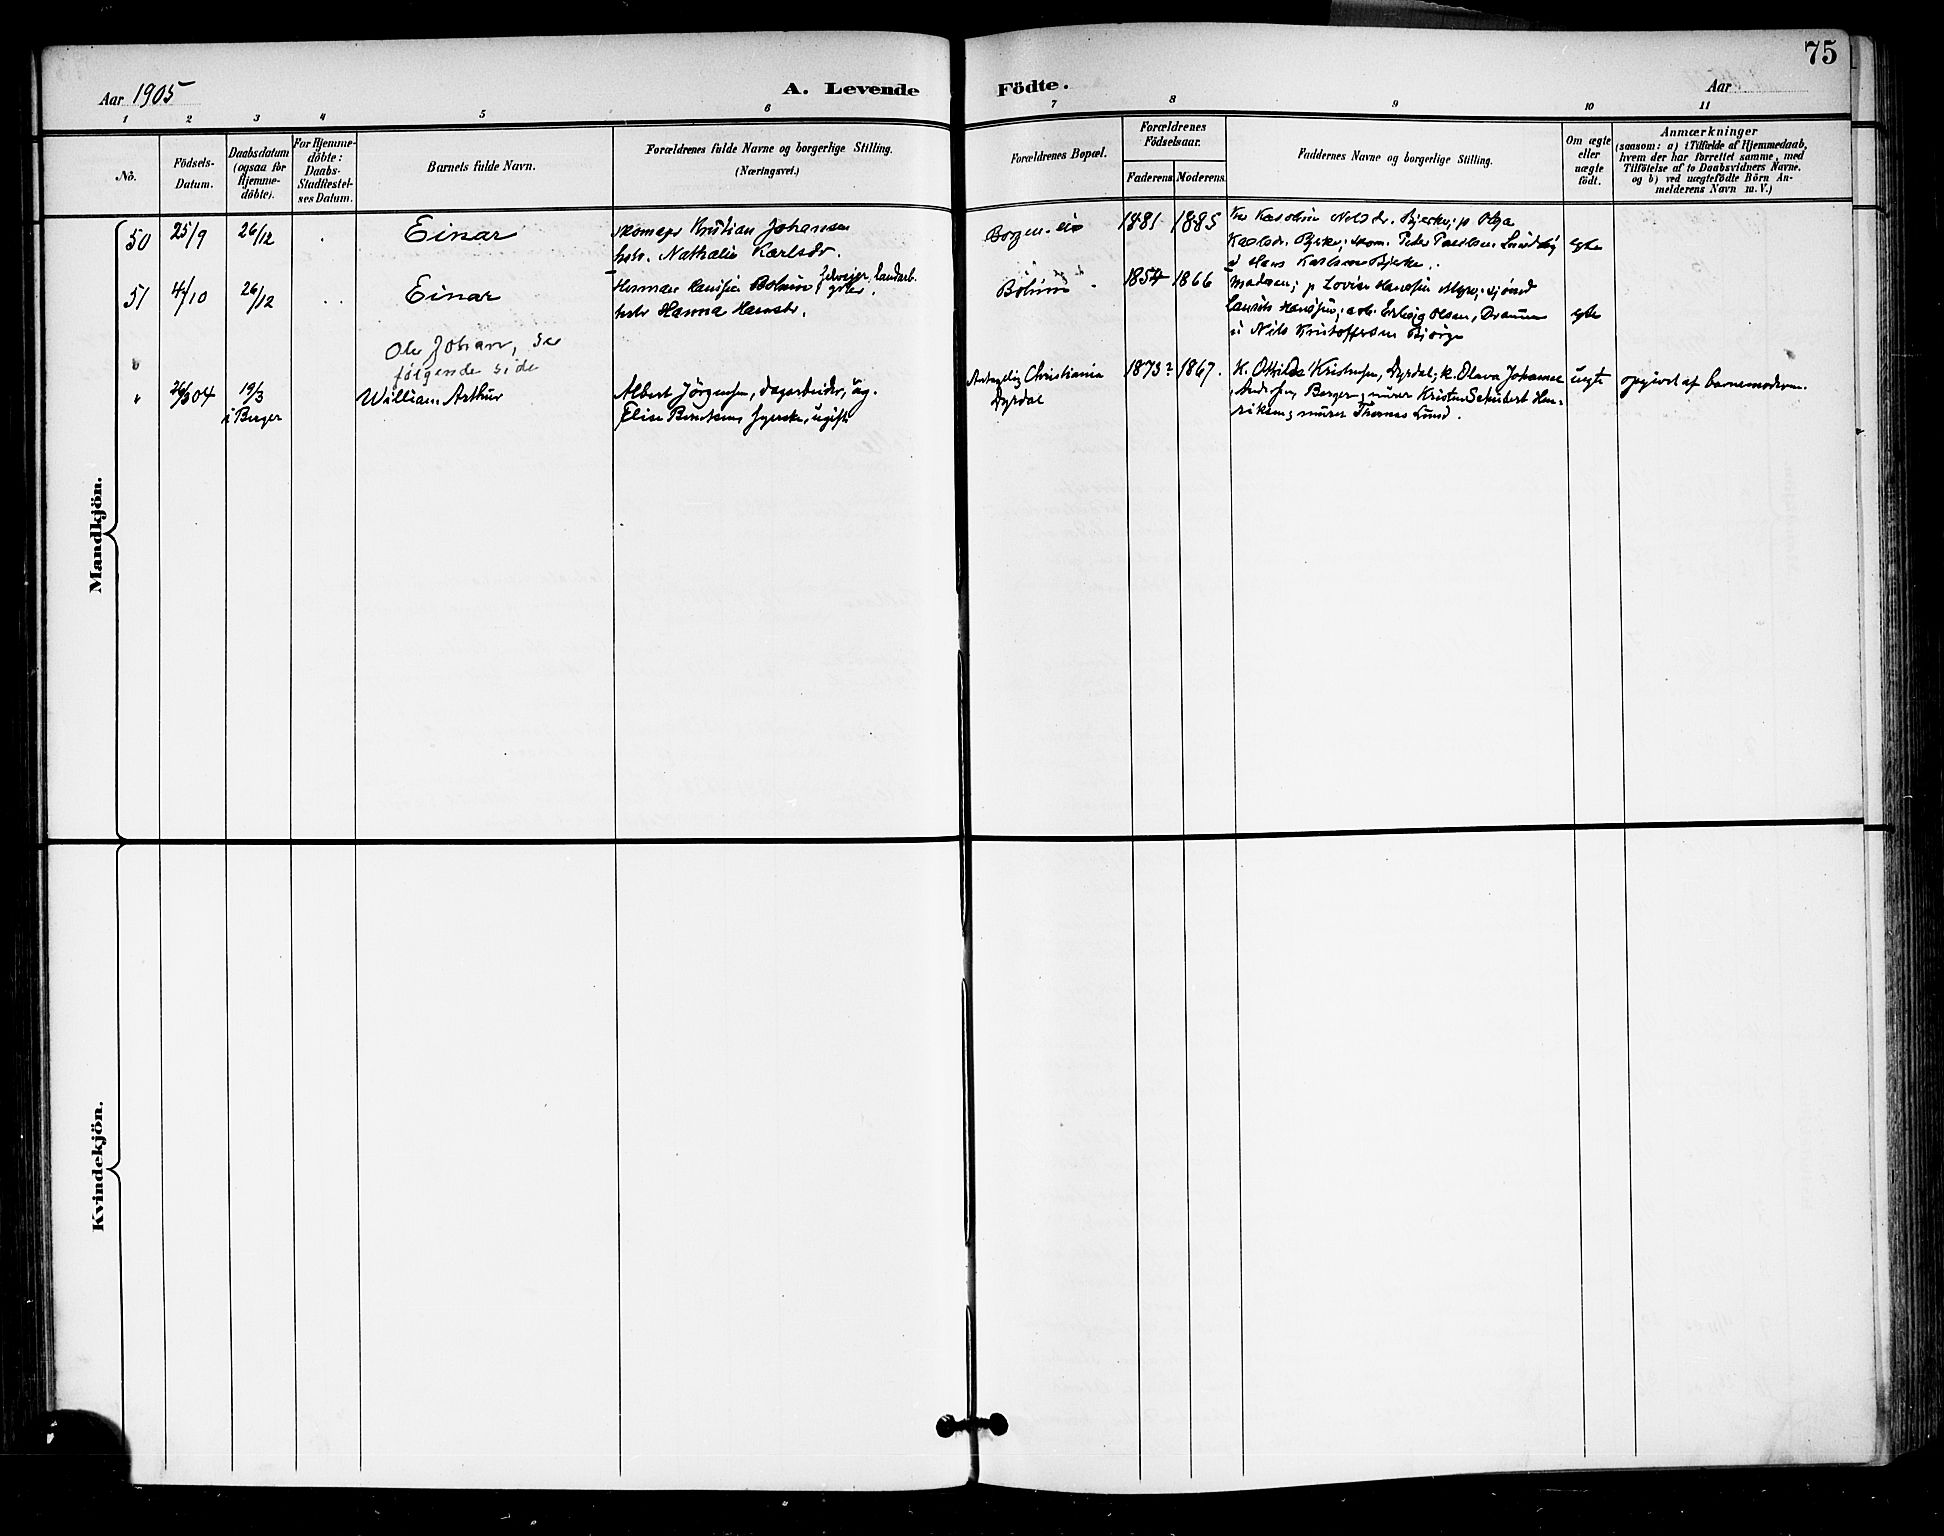 75
Aar 1905
A. Levende Födte.
Aar
1 2 3 4 5 6 7 8 9 10 11
No.
Födsels-
Datum.
Daabsdatum
(ogsaa for
Hjemme-
döbte).
For Hjemme-
döbte:
Daabs-
Stadfæstel-
ses Datum.
Barnets fulde Navn.
Forældrenes fulde Navne og borgerlige Stilling.
(Næringsvei.)
Forældrenes Bopæl.
Forældrenes
Födselsaar.
Faderens Moderens
Faddernes Navne og borgerlige Stilling.
Om ægte
eller
uægte
födt.
Anmærkninger
(saasom: a) i Tilfælde af Hjemmedaab,
hvem der har forrettet samme, med
Tilföielse af to Daabsvidners Navne.
og b) ved uægtefödte Börn An-
melderens Navn m. V.)
Mandkjön.
50 25/9 26/12 Einar
Kristian Johansen
Nathalie Karlsdr.
Borgen
1881 1885
Nilsdr. Bjerke; p Olga
Karlsdr. Bjerke; Peter
Hans Karlsen Bjerke.
egte
51 4/10 26/12 Einar
Herman Hansen Bolum
Hanna Hansdr.
Bolum
1854 1866
Madsen; p Lovise Hansen
Laurits Hansen; Olsen,
Nils Kristoffersen Bjørge
egte
" Ole Johan, se
følgende side
" 04 19/3
i Berger
William Arthur
Albert Jörgensen, dagarbeider, ug.
Elise Berntsen, ugift
Antagelig Christiania
Dyrdal
1873? 1867.
K. Otthilde Kristensen, Dyrdal; K. Olava Johanne
Andersen, Berger; murer Kristen Schubert Hen-
riksen; murer Thomas Lund.
uegte
opgivet af barnemoderen.
Kvindekjön.